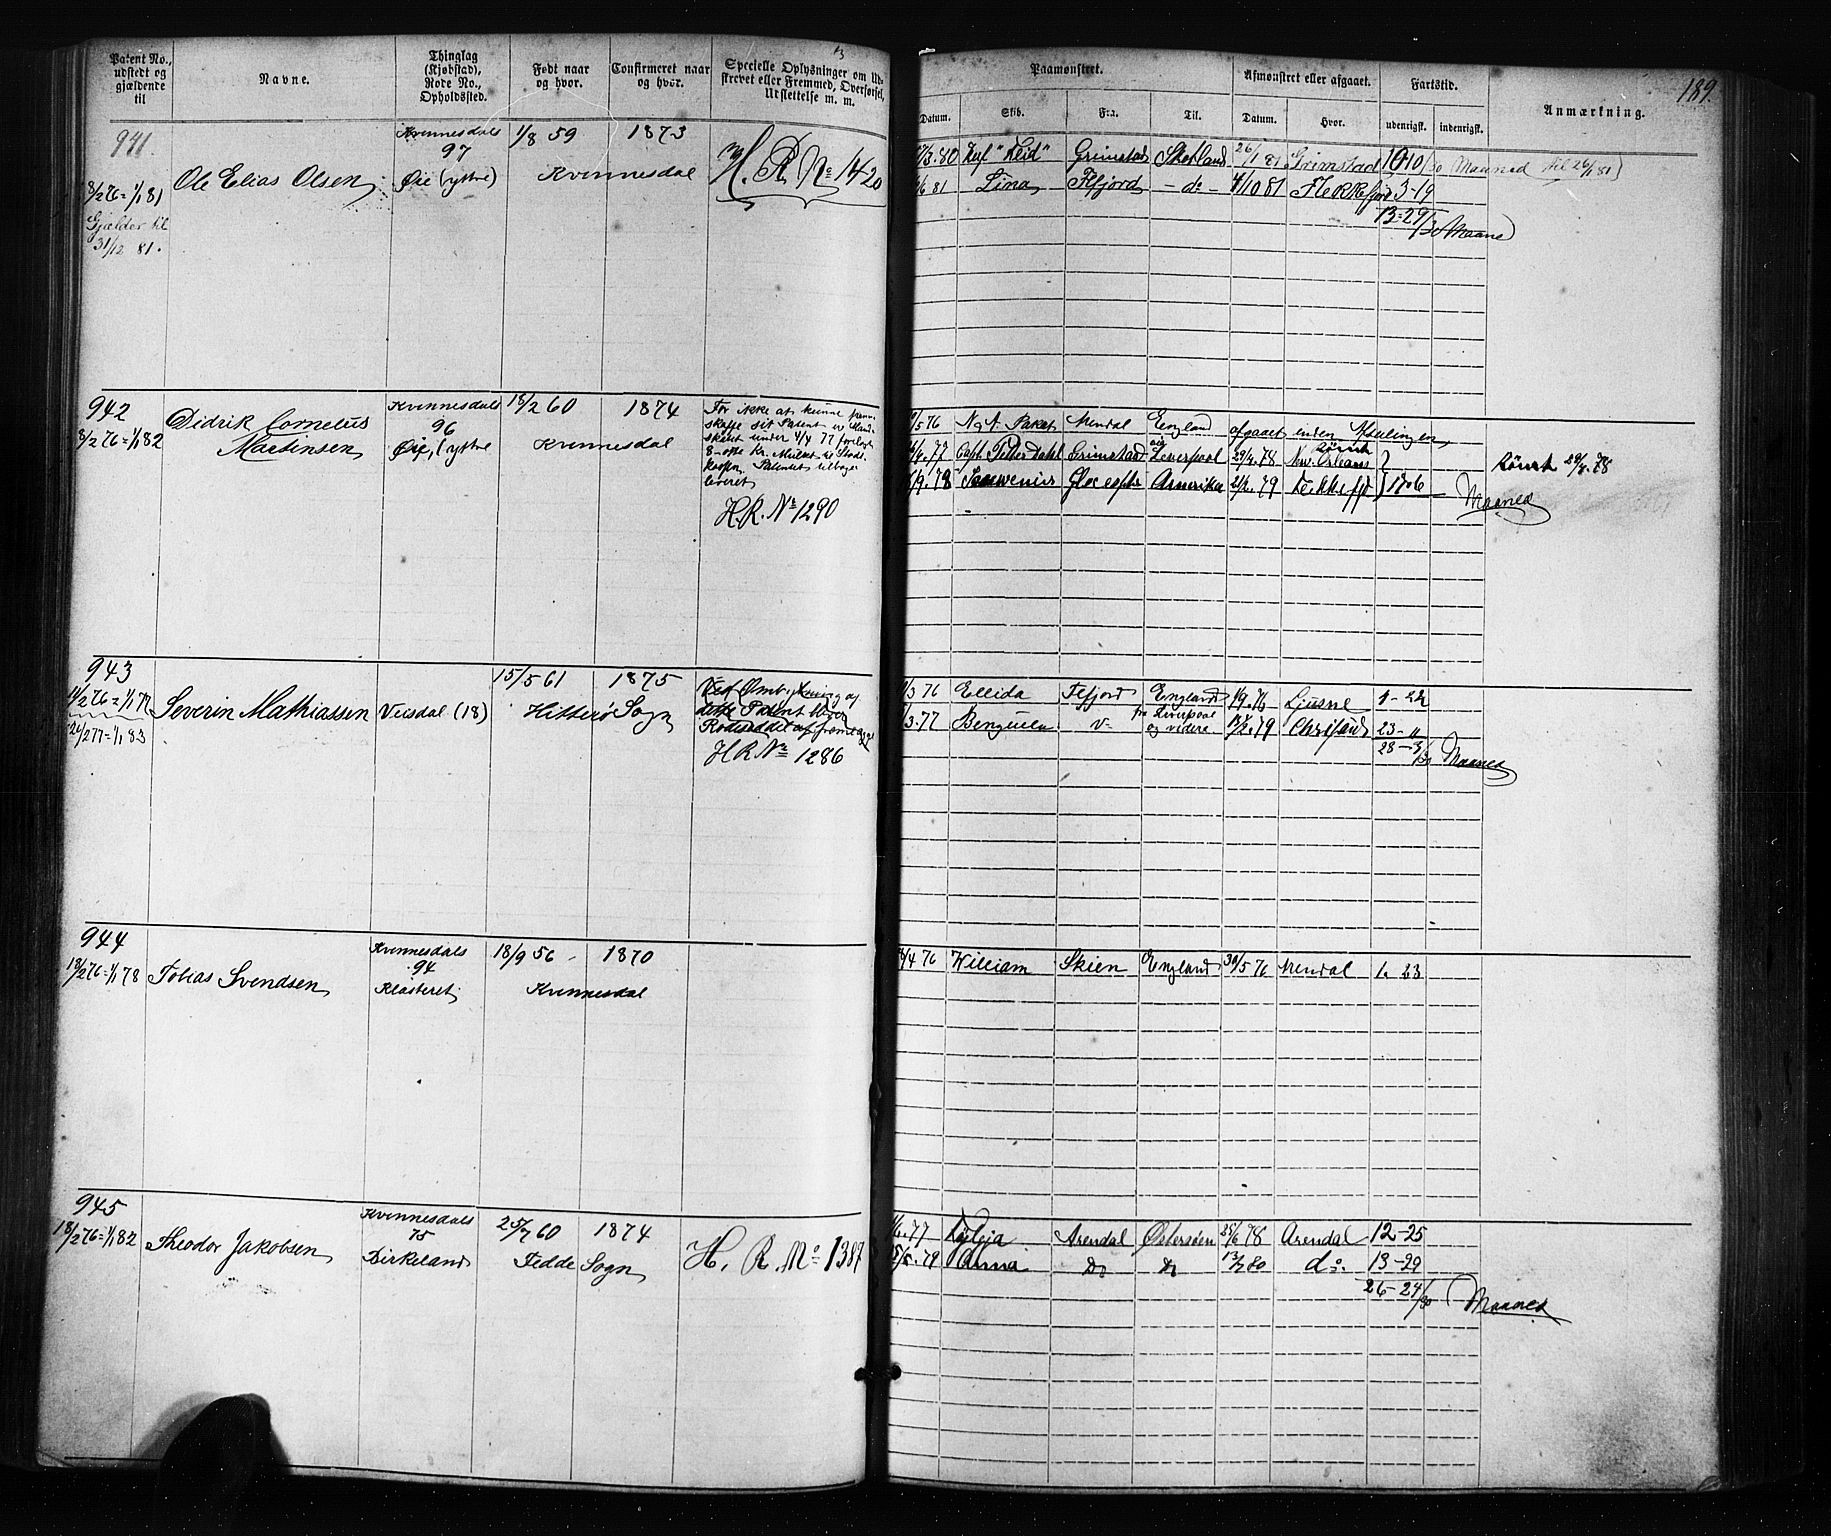 Patent No., udstedt og gjældende til
Navne.
Thinglag (Kjøbstad), Rode No., Opholdssted.
Født naar og hvor.
Confirmeret naar og hvor.
Specielle Oplysninger om Udskrevet eller Fremmed, Overførsel, Udslettelse m. m.
Paamønstret.
Afmønstret eller afgaaet.
Fartstid.
Anmærkning.
189.
Datum.
Skib.
Fra.
Til.
Datum.
Hvor.
udenrigsk.
indenrigsk.
941.
18/2 76 = 1/1 81
Gjælder til
31/12 81.
Ole Elias Olsen
Kvinnesdals
97
Øie (ystre)
1/8 59
1873
Kvinnesdal
H. R. No 1420
/3.80 "Leid" Grimstad Shetland 26/1 81 Grimstad 10 10/30 Maaned til 26/1 81
/6 81 Lina Ffjord - do - 4/10 81 Flekkefjord 3-19
13-29/30 Maaned
942
18/2 76 = 1/1 82
Didrik Cornelius
Martinsen
Kvinnesdals
96
Øie, (ystre
18/2 60
1874
Kvinnesdal
For ikke at kunne frem-
skaffe sit Patent
under 4/4 77
8 - otte Kr.
Patentet tilbage-
leveret
H. R. No 1290
/5 76 N. A. Mandal England afgaaet inden
/4.77 Capt. Petter Dahl Grimstad Liverpool 29/4.78 New Orleans Rømt
/9.78 Amerika 2/2.79 17-6 Maaned
Rømt 29/4.78
943
14/2 76 = 1/1 77
24/2 77 = 1/1 83
Severin Mathiassen
Veisdal (18)
15/5 61
1875
Hitterø Sogn
Ved Ombytning af
dette Patent bliver
H R No 1286
/3 76 Ellida Ffjord England Ljusne 4-22
/3.77 Benguela Liverpool og videre Chrisand 23-
28-3/30 Maaned
944
18/2 76 = 1/1 78
Tobias Svendsen
Kvinnesdals
94
Klosteret
18/9 56
1870
Kvinnesdal
/4 76 William Skien England 30/5 76 Mandal 1. 23
945
18/2 76 = 1/1 82
Theodor Jakobsen
Kvinnesdals
75
Birkeland
25/7 60
1874
Fedde Sogn
H. R. No 1387
/6.77 Arendal Østersøen 25/6 78 Arendal 12-25
/5.79 Anna Do Do 13/7 80 do. 13-29
26-24/30 Maaned